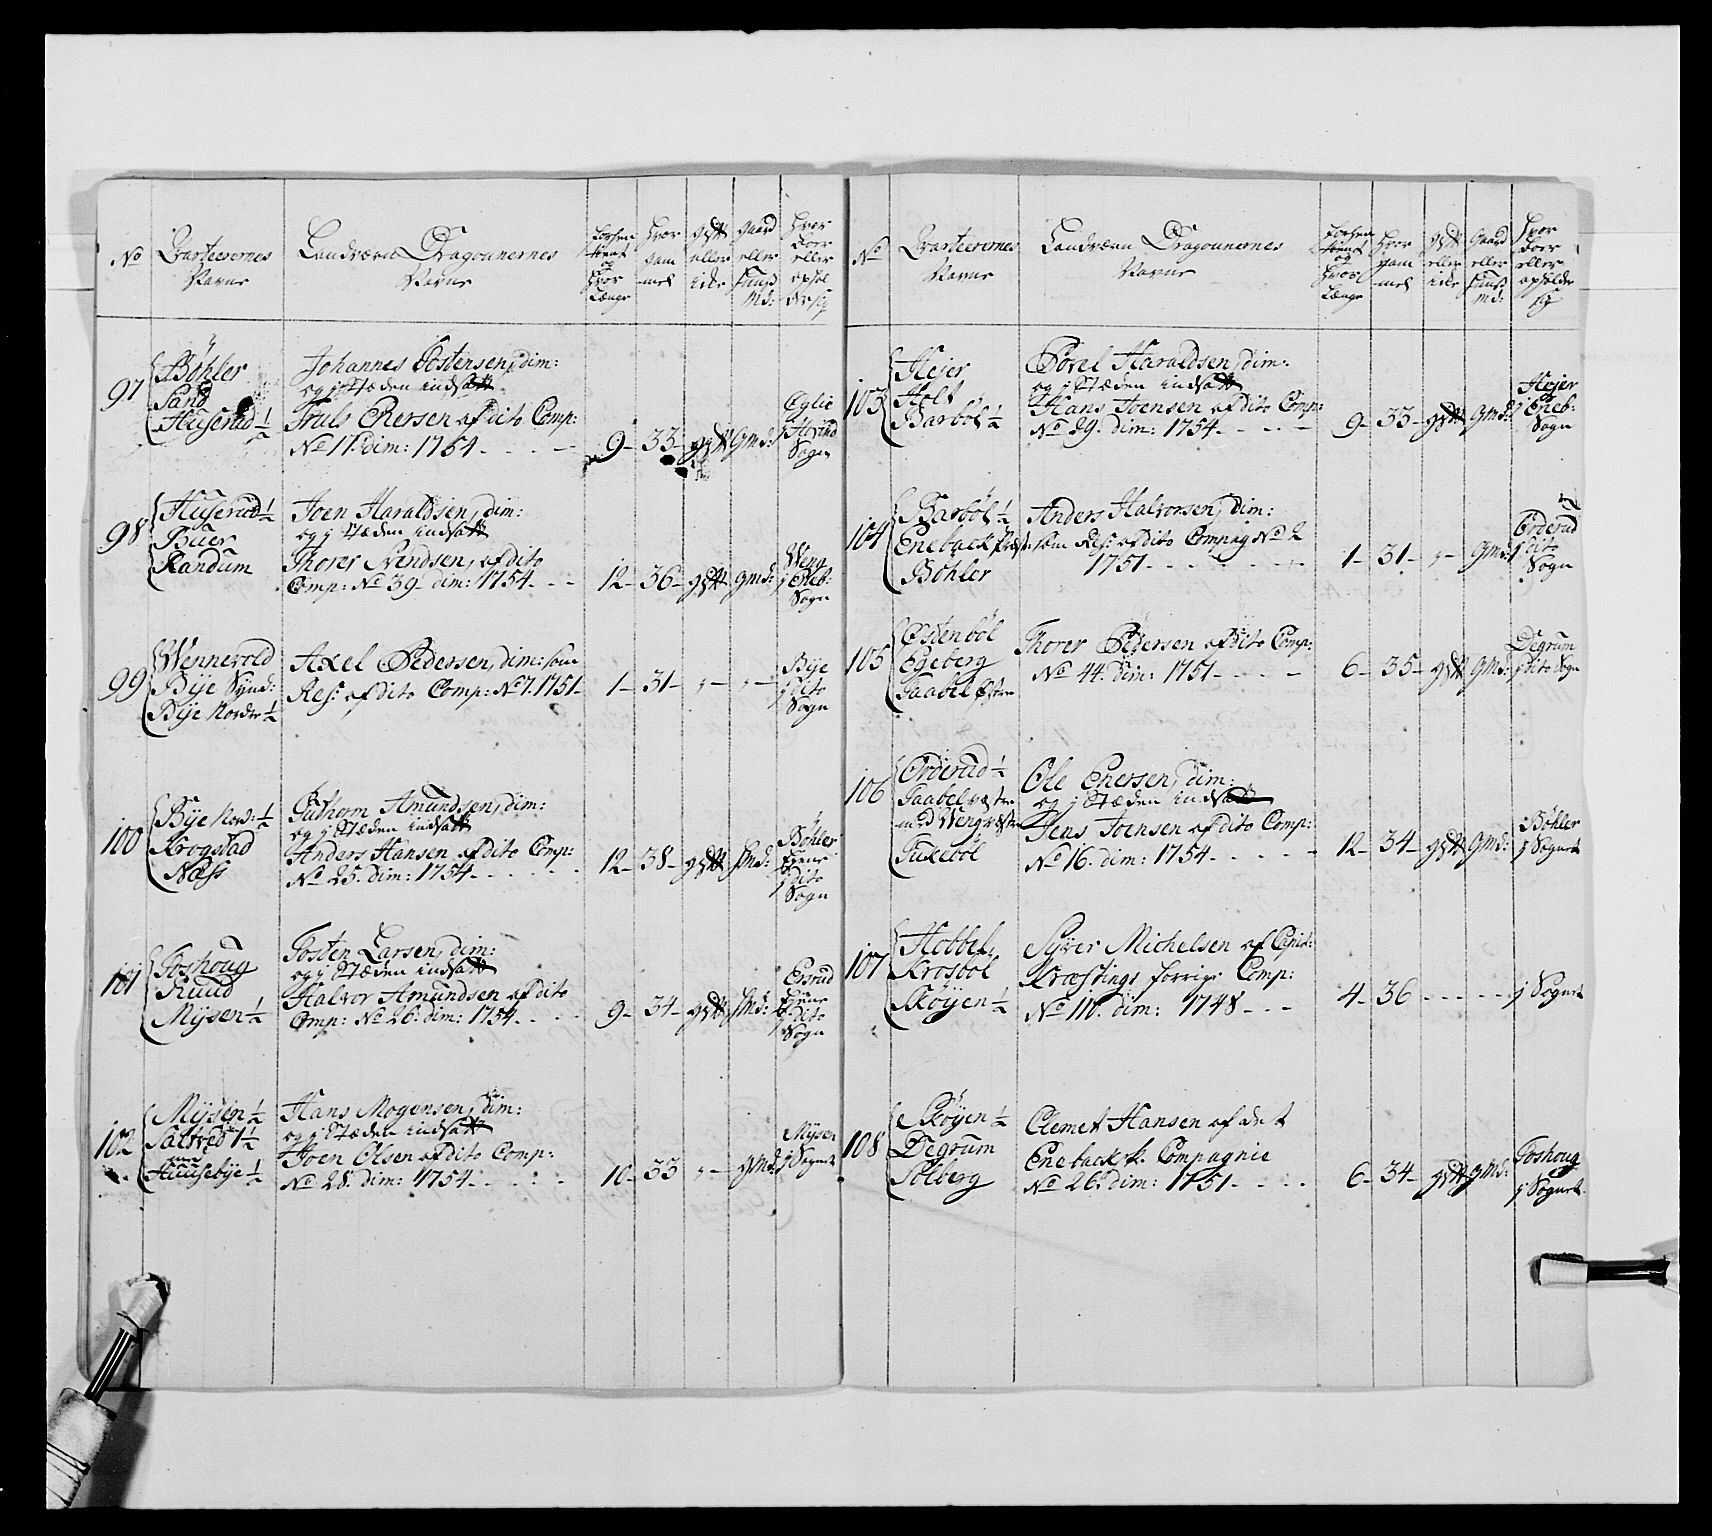 No
Qvarteerernes
Navne
Landværn Dragounernes
Navne
Forhen
tient
og
Hvor
Længe
Hvor
gam
mel
gift
eller
icke
gaard
eller
Huus
Md:
Hvor
Boer
eller
ophol
der sig
97
Bøhler
Sand
Huserud ½
Johannes Tostensen, dim:
og j Stæden indsatt
Truls Ehersen af dito Comp:
No 11. dim: 1754
9 33 gift gmd:
Eglie
j Høvind
Sogn
98
Huserud ½
Buer
Randum
Joen Haraldsen, dim:
og j Stæden indsatt
Thorer Svendsen, af dito
Comp: No 39 dim: 1754
12 36 gift gmd:
Weng
j Eneb:
Sogn
99
Wennevold
Bije Synd:
Bije Nordre ½
Axel Pedersen, dim: som
Res: af dito Comp: No 7. 1751
1 31 „ „
Bije
j dito
Sogn
100
Bije Nord: ½
Krogstad
Næss
Guthorm Amundsen, dim:
og j Stæden indsatt
Anders Hansen af dito Comp:
No 25. dim: 1754
12 38 gift Hmd:
Bøhler
Eyene
j dito
Sogn
101
Foshoug
Ruud
Mijsen ½
Tosten Larsen, dim:
og j Stæden indsatt
Halvor Amundsen af dito
Comp: No 26. dim: 1754
9 34 gift Hmd:
Eyene
j dito
Sogn
102
Mijsen ½
Huusebije ½
Hans Mogensen, dim:
og j Stæden indsatt
Joen Olsen af dito Comp:
No 28. dim: 1754
10 33 „ gmd:
Mijsen
j Sognet
No
Qvarteerernes
Navne
Landværn Dragounernes
Navne
Forhen
tient
og
Hvor
Længe
Hvor
gam
mel
gift
eller
icke
Gaard
eller
Huus
Md:
Hvor
Boer
eller
opholder
sig
103
Hejer
Holt
Barbøl ½
Povel Haraldsen, dim:
og j Stæden indsatt
Hans Joensen af dito Comp:
No 29. dim: 1754
9 33 gift Gmd:
Hejer
j Eneb:
Sogn
104
Barbøl ½
Eneback Præste:
Bøhler
Anders Halvorsen, dim:
som Res: af dito Compag No 2
1751
1 31 „ Gmd:
j dito
Sogn
105
Østenbøl
Egeberg
Taabel Østre
Thorer Pedersen af dito Comp:
No 44. dim: 1751
6 35 gift Gmd:
Degrum
j dito Sogn
106
Orderud ½
Taabel væstre
med Weng væstre
Tukebøl
Ole Ehersen, dim:
og j Stæden indsatt
Jens Joensen af dito Comp:
No 16. dim: 1754
12 34 gift Gmd:
Bøhler
j Sognet
107
Hobbel
Krosbøl
Skøyen ½
Syver Michelsen af Capit:
Kræftings forrige Comp:
No 110. dim: 1748
4 36
j Sognet
108
Skøyen ½
Degrum
Solberg
Clemet Hansen af det
Enebackske Compagnie
No 26. dim: 1751
6 34 gift gmd:
Foshoug
j Sognet